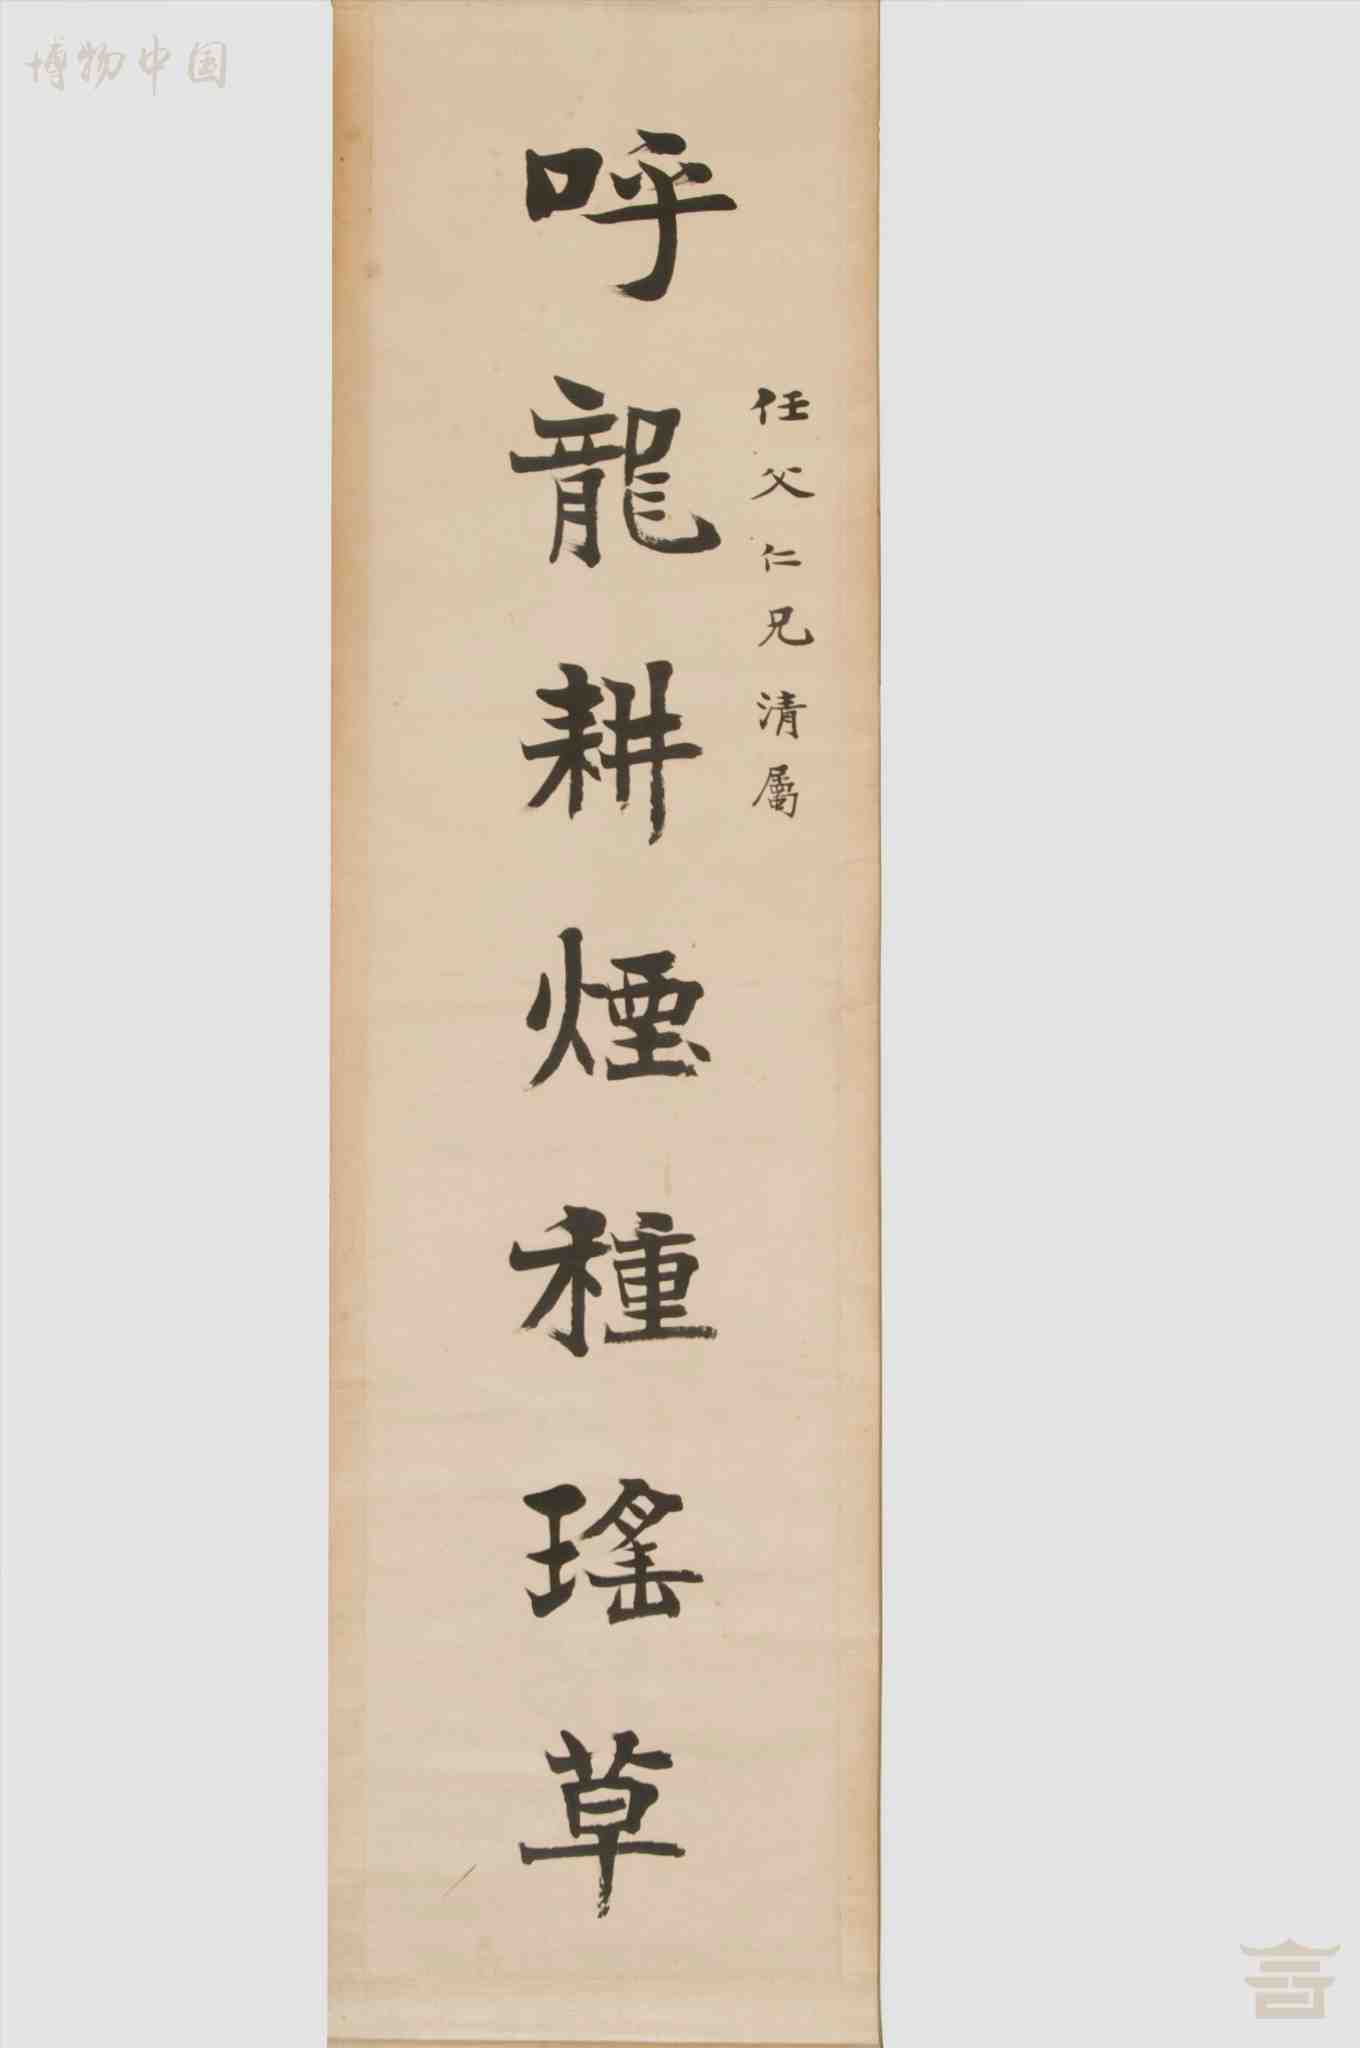 博物中国
任父仁兄清屬
呼龍耕煙種瑤草